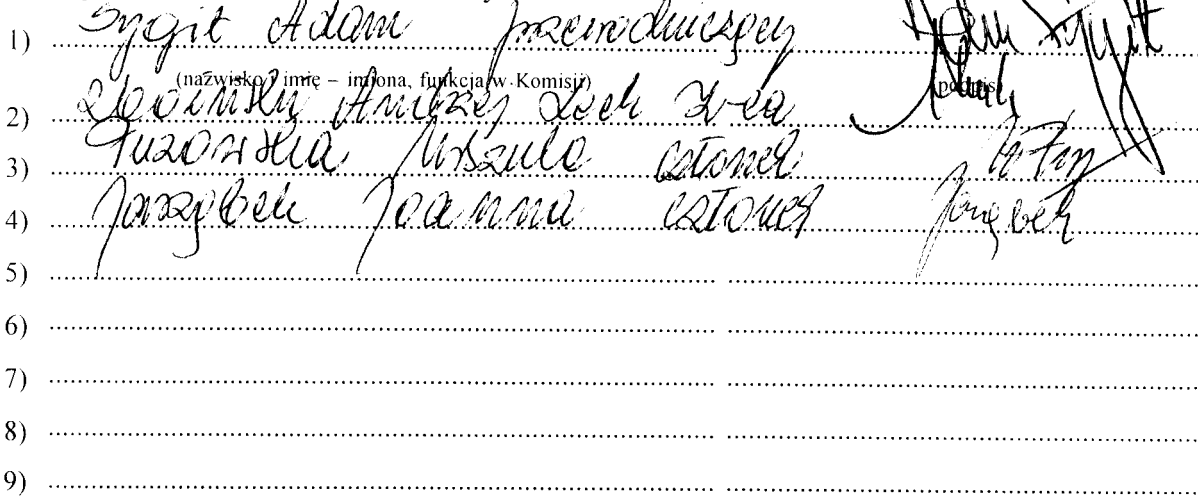 1) Sygit Adam przewodniczący Adam Sygit
(nazwisko i imię – imiona, funkcja w Komisji) (podpis)
2) Andrzej Lech Z-ca
3) Urszula członek
4) Jarząbek Joanna członek Jarząbek
5)
6)
7)
8)
9)